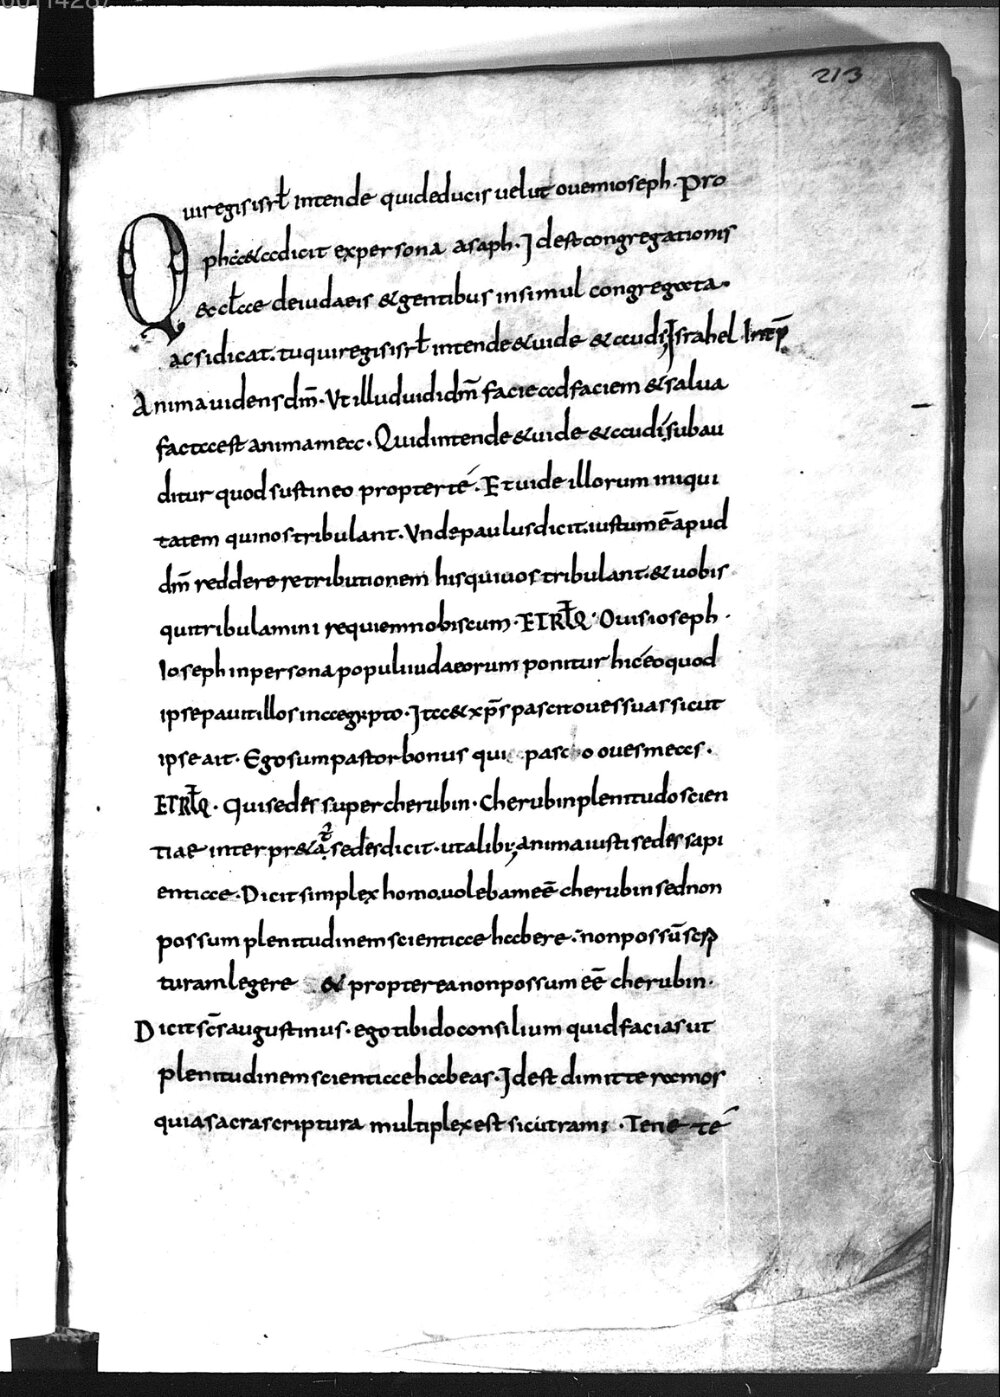 213
Qui regis isrł intende qui deducis uelut ouem ioseph. Pro
pheta dicit ex persona asaph. Id est congregationis
& ecłae de iudaeis & gentibus insimul congregata.
ac si dicat. tu qui regis isrł intende & uide & audi; Israhel. Intp̄
Anima uidens dm̄. Ut illud uidi dm̄ facie ad faciem & salua
facta est anima mea. Quid intende & uide & audi subau
ditur quod sustineo propter té. Et uide illorum iniqui
tatem qui nos tribulant. Unde paulus dicit. iustum ē apud
dm̄ reddere retributionem his qui uos tribulant. & uobis
qui tribulamini requiem nobiscum. ET RŁQ. Ouis ioseph.
Ioseph in persona populi iudaeorum ponitur hic eo quod
ipse pauit illos in aegypto. Ita & xp̄s pascit oues suas sicut
ipse ait. Ego sum pastor bonus qui pasco oues meas.
ET RŁQ. Qui sedes super cherubin. Cherubin plenitudo scien
tiae inter pr&at sedes dicit. ut alibi; anima iusti sedes sapi
entiae. Dicit simplex homo. uolebam eē cherubin sed non
possum plenitudinem scientiae habere. non possū scrip
turam legere & propterea non possum eē cherubin.
Dicit scs̄ augustinus. ego tibi do consilium quid facias ut
plenitudinem scientiae habeas. Id est dimitte ramos
quia sacra scriptura multiplex est sicut rami. Tene té